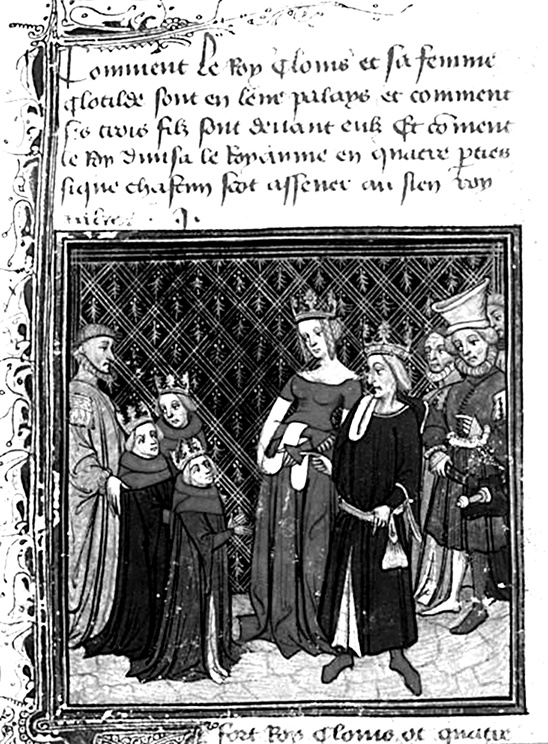 Comment Le Roy Clouis et sa femme
Clotilde sont en leur palays et comment
ses trois filz sont deuant eulx Et coment
le Roy diuisa le Royaume en quatre pties
sique chascun scet assener au sien roy
aulme . J.
fort Roy Clouis ot quatre